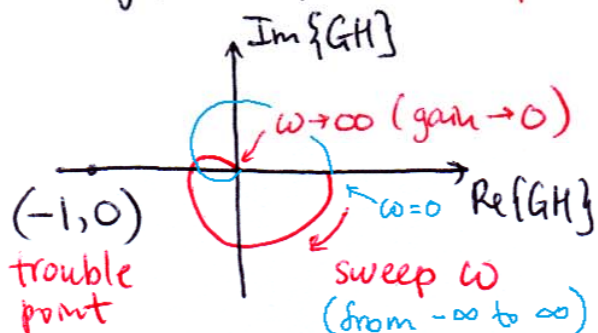 Im{GH}
ω→∞ (gain→0)
(-1,0)
ω=0
Re{GH}
trouble
point
sweep ω
(from -∞ to ∞)